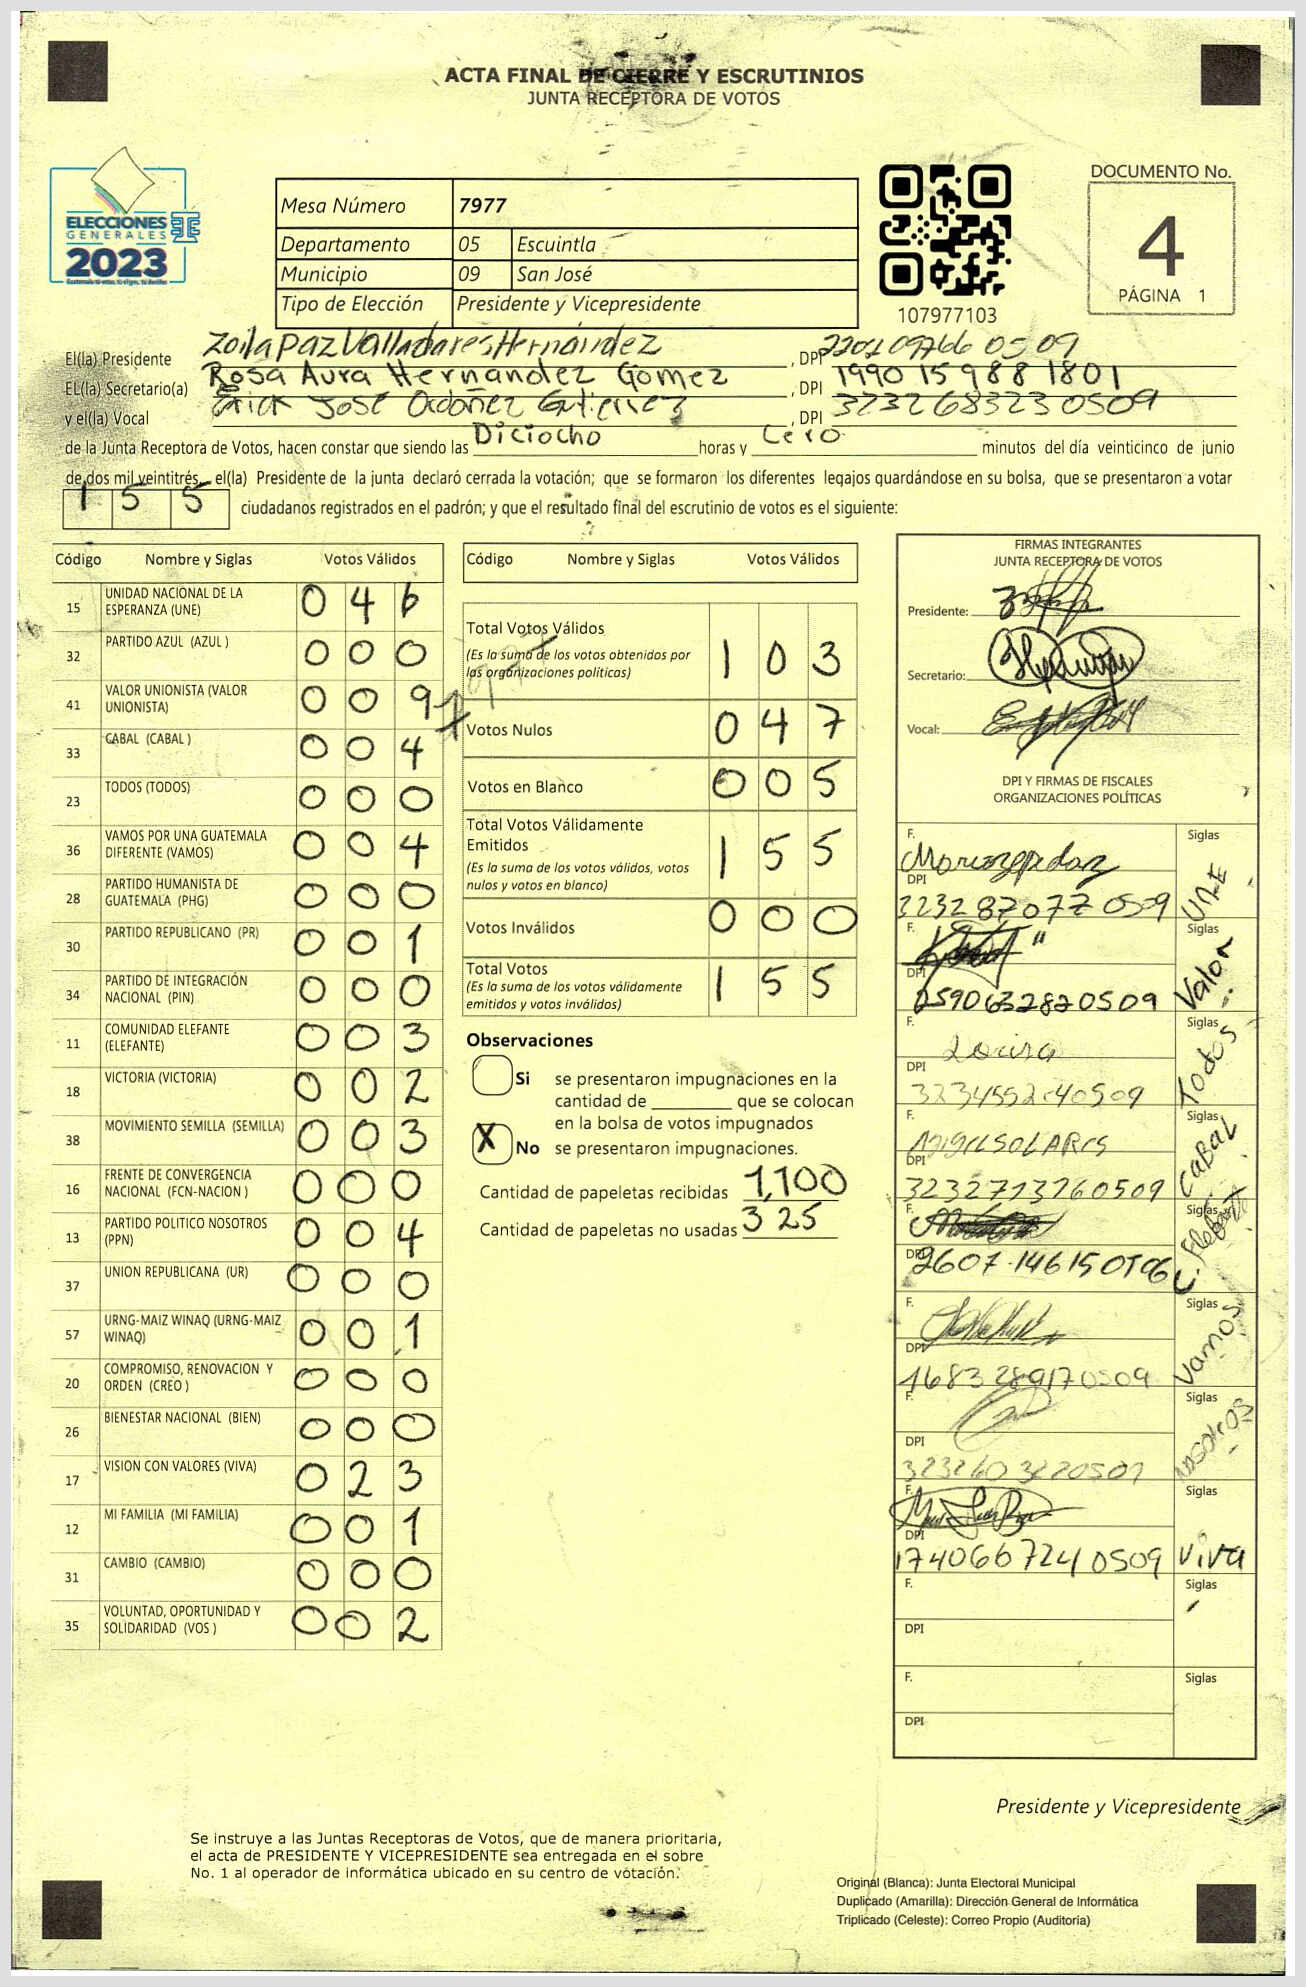 ACTA FINAL DE CIERRE Y ESCRUTINIOS
JUNTA RECEPTORA DE VOTOS
ELECCIONES
GENERALES
2023
Mesa Número 7977
Departamento 05 Escuintla
Municipio 09 San José
Tipo de Elección Presidente y Vicepresidente
107977103
DOCUMENTO No.
4
PÁGINA 1
El(la) Presidente Zoila Paz Valladares Hernández , DPI 220109766 0509
EL(la) Secretario(a) Rosa Aura Hernández Gómez , DPI 1990 15988 1801
y el(la) Vocal Erick José Ordoñez Gutierrez , DPI 323268323 0509
de la Junta Receptora de Votos, hacen constar que siendo las Diciocho horas y Cero minutos del día veinticinco de junio
de dos mil veintitrés, el(la) Presidente de la junta declaró cerrada la votación; que se formaron los diferentes legajos guardándose en su bolsa, que se presentaron a votar
1 5 5 ciudadanos registrados en el padrón; y que el resultado final del escrutinio de votos es el siguiente:
Código Nombre y Siglas Votos Válidos
15 UNIDAD NACIONAL DE LA ESPERANZA (UNE) 0 4 6
32 PARTIDO AZUL (AZUL ) 0 0 0
41 VALOR UNIONISTA (VALOR UNIONISTA) 0 0 9
33 CABAL (CABAL ) 0 0 4
23 TODOS (TODOS) 0 0 0
36 VAMOS POR UNA GUATEMALA DIFERENTE (VAMOS) 0 0 4
28 PARTIDO HUMANISTA DE GUATEMALA (PHG) 0 0 0
30 PARTIDO REPUBLICANO (PR) 0 0 1
34 PARTIDO DE INTEGRACIÓN NACIONAL (PIN) 0 0 0
11 COMUNIDAD ELEFANTE (ELEFANTE) 0 0 3
18 VICTORIA (VICTORIA) 0 0 2
38 MOVIMIENTO SEMILLA (SEMILLA) 0 0 3
16 FRENTE DE CONVERGENCIA NACIONAL (FCN-NACION ) 0 0 0
13 PARTIDO POLITICO NOSOTROS (PPN) 0 0 4
37 UNION REPUBLICANA (UR) 0 0 0
57 URNG-MAIZ WINAQ (URNG-MAIZ WINAQ) 0 0 1
20 COMPROMISO, RENOVACION Y ORDEN (CREO ) 0 0 0
26 BIENESTAR NACIONAL (BIEN) 0 0 0
17 VISION CON VALORES (VIVA) 0 2 3
12 MI FAMILIA (MI FAMILIA) 0 0 1
31 CAMBIO (CAMBIO) 0 0 0
35 VOLUNTAD, OPORTUNIDAD Y SOLIDARIDAD (VOS ) 0 0 2
Código Nombre y Siglas Votos Válidos
Total Votos Válidos 1 0 3
(Es la suma de los votos obtenidos por
las organizaciones políticas)
Votos Nulos 0 4 7
Votos en Blanco 0 0 5
Total Votos Válidamente
Emitidos 1 5 5
(Es la suma de los votos válidos, votos
nulos y votos en blanco)
Votos Inválidos 0 0 0
Total Votos 1 5 5
(Es la suma de los votos válidamente
emitidos y votos inválidos)
Observaciones
Si se presentaron impugnaciones en la
cantidad de ________ que se colocan
en la bolsa de votos impugnados
X No se presentaron impugnaciones.
Cantidad de papeletas recibidas 1,100
Cantidad de papeletas no usadas 325
FIRMAS INTEGRANTES
JUNTA RECEPTORA DE VOTOS
Presidente:
Secretario:
Vocal:
DPI Y FIRMAS DE FISCALES
ORGANIZACIONES POLÍTICAS
F. Siglas UNE
DPI 3232 87077 0509
F. Siglas Valor
DPI 2590632820509
F. Siglas Todos
DPI
F. Siglas CABAL
DPI 3232713760509
F. Siglas
DPI
F. Siglas Vamos
DPI 1683289170509
F. Siglas Nosotros
DPI
F. Siglas viva
DPI 1740667240509
F. Siglas
DPI
F. Siglas
DPI
Presidente y Vicepresidente
Se instruye a las Juntas Receptoras de Votos, que de manera prioritaria,
el acta de PRESIDENTE Y VICEPRESIDENTE sea entregada en el sobre
No. 1 al operador de informática ubicado en su centro de votación.
Original (Blanca): Junta Electoral Municipal
Duplicado (Amarilla): Dirección General de Informática
Triplicado (Celeste): Correo Propio (Auditoría)